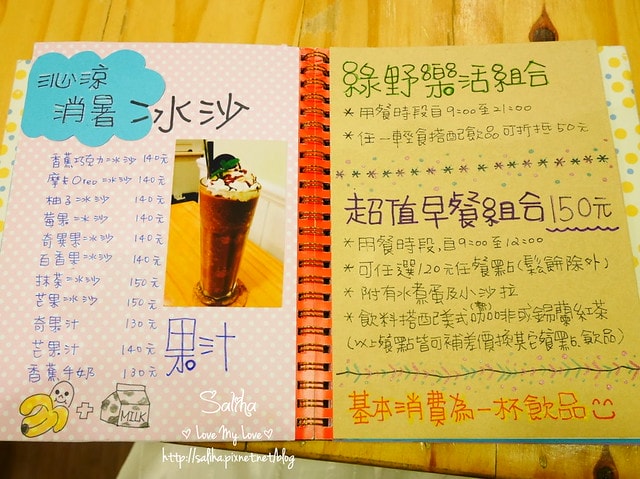 沁涼
消暑
冰沙
香蕉巧克力冰沙 140元
摩卡Oreo冰沙 140元
柚子冰沙 140元
莓果冰沙 140元
奇異果冰沙 140元
百香果冰沙 140元
抹茶冰沙 150元
芒果冰沙 150元
奇果汁 130元
芒果汁 140元
香蕉牛奶 130元
果汁
MILK
Saliha
Love My Love
http://saliha.pixnet.net/blog
綠野樂活組合
* 用餐時段自9:00至21:00
* 任一輕食搭配飲品可折抵50元
超值早餐組合150元
* 用餐時段,自9:00至12:00
* 可任選120元任餐點(鬆餅除外)
* 附有水煮蛋及小沙拉
* 飲料搭配美式咖啡或錫蘭紅茶
(以上餐點皆可補差價換其它餐點、飲品)
基本消費為一杯飲品